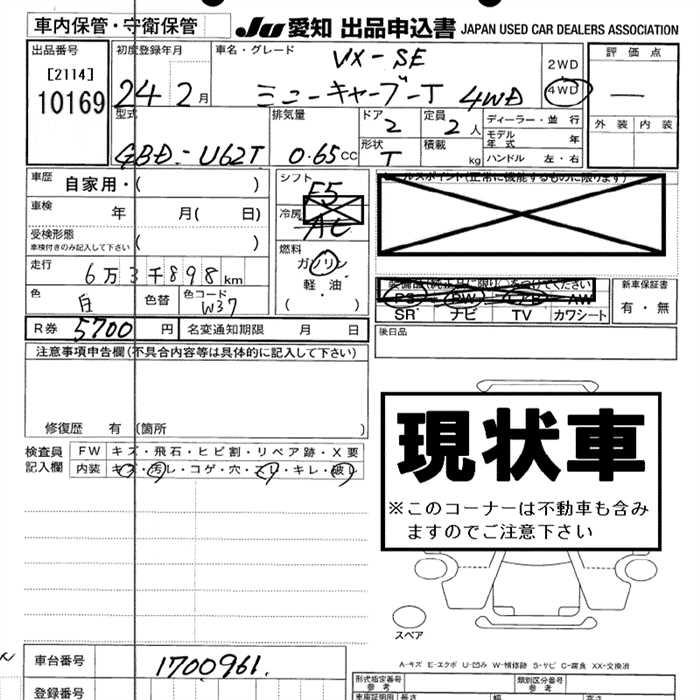 車内保管・守衛保管 JU 愛知 出品申込書 JAPAN USED CAR DEALERS ASSOCIATION
出品番号 初度登録年月 車名・グレード VX-SE 2WD 評価点
[2114] 10169 24 2月 ミニーキャーブーT 4WD 4WD —
外装 内装
型式 排気量 ドア 2 定員 2人 ディーラー・並行
モデル年式 年
GBD-U62T 0.65cc 形状 T 積載 kg ハンドル 左・右
車歴 自家用・( ) シフト F5 セールスポイント(正常に機能するものに限ります)
車検 年 月( 日) 冷房 AC
受検形態 車検付きのみ記入して下さい ( )
燃料 ガソリン
走行 6万3千898km 軽油・ 装備品(純正品に限り○をつけてください) 新車保証書
色 白 色替 色コード W37 ( ) PS PW エアB AW 有・無
SR ナビ TV カワシート
R券 5700円 名変通知期限 月 日 後日品
注意事項申告欄(不具合内容等は具体的に記入して下さい)
修復歴 有 (箇所 )
現状車
※このコーナーは不動車も含み
ますのでご注意下さい
検査員記入欄 FW キズ・飛石・ヒビ割・リペア跡・X要
内装 キズ・汚レ・コゲ・穴・スレ・キレ・破レ
スペア
A-キズ E-エクボ U-凹み W-補修跡 S-サビ C-腐食 XX-交換済
車台番号 1700961. 形式指定番号 参考 類別区分番号 参考
登録番号